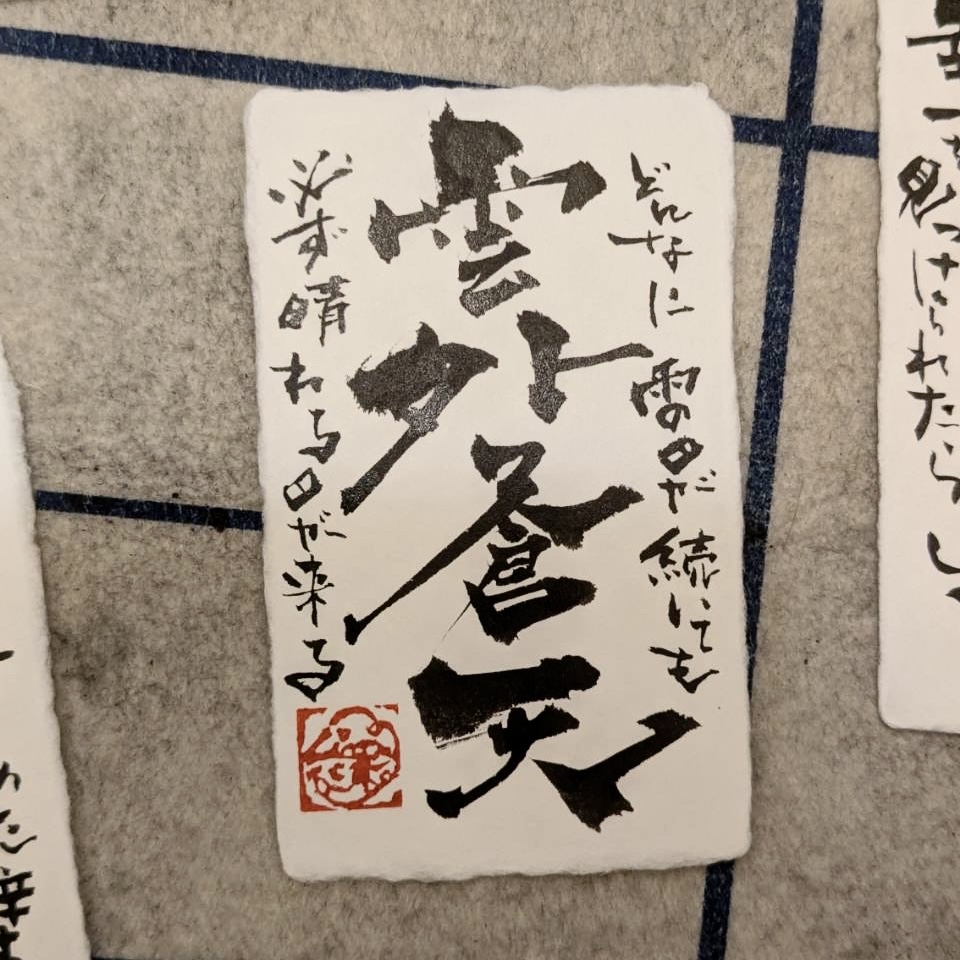 見つけられたら
どんなに雨の日が続いても
雲外蒼天
必ず晴れる日が来る